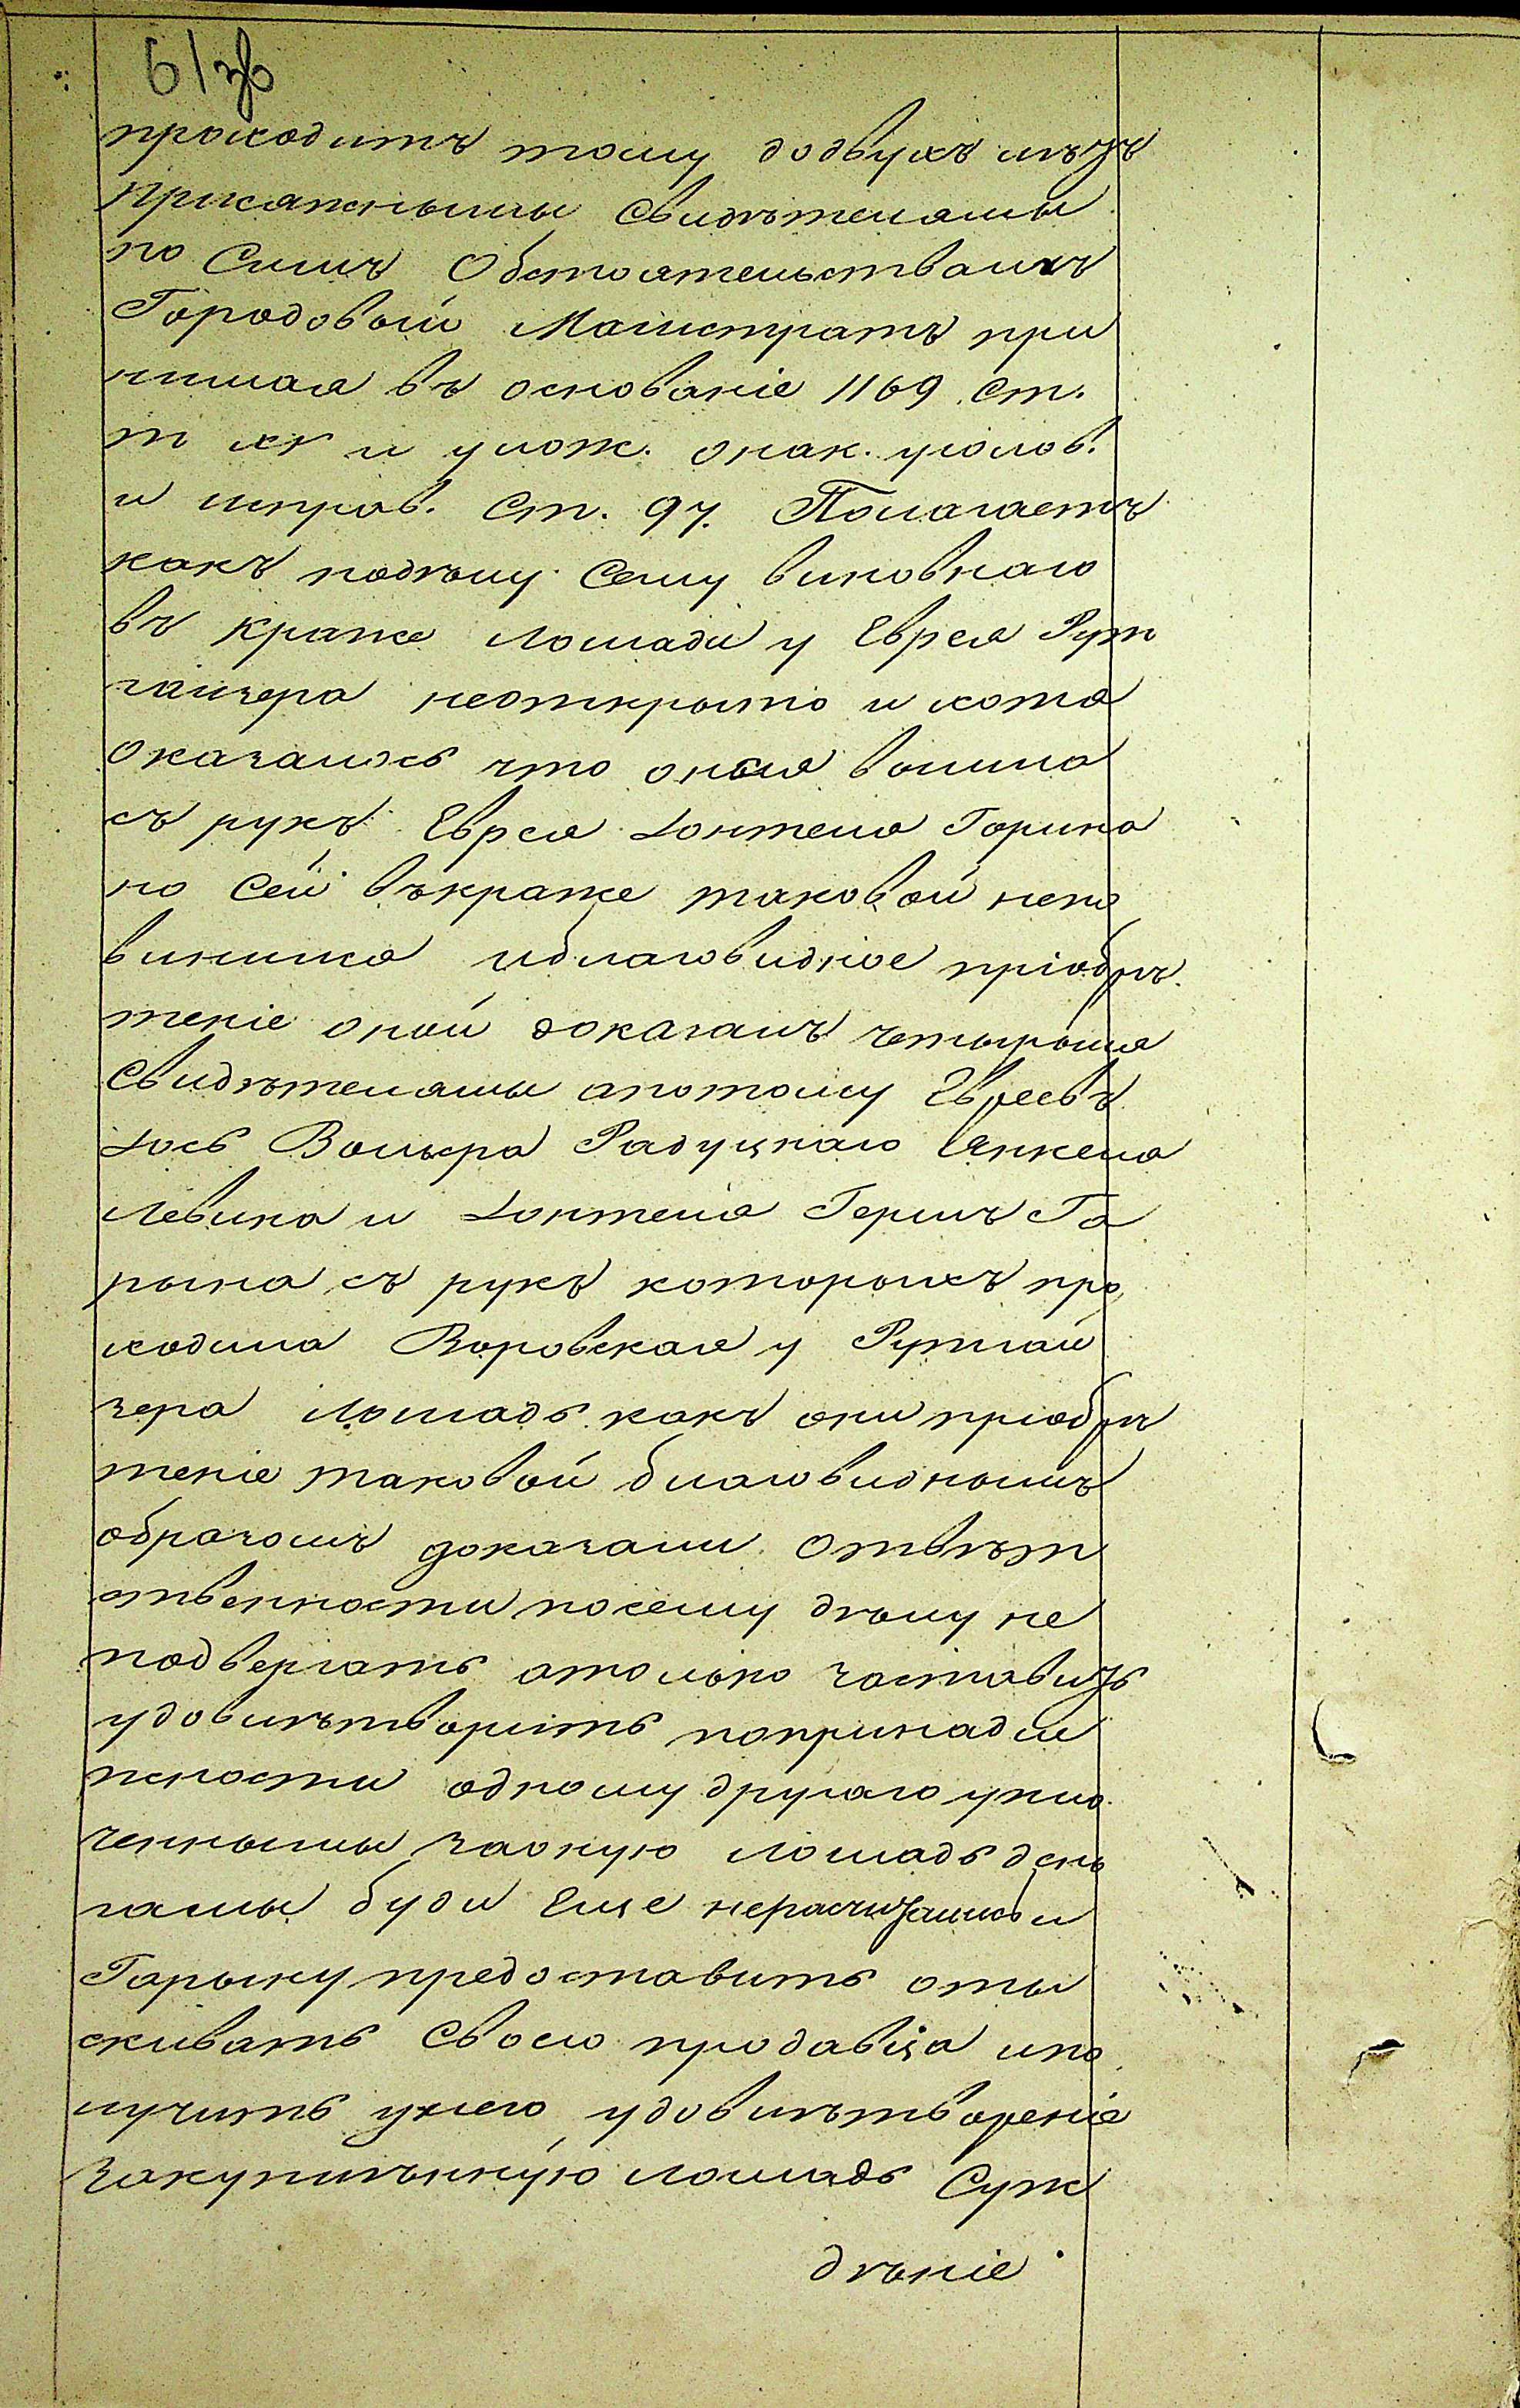 61 зв
проходитъ тому додвухъ лѣтъ
присяжнымы свидѣтелямы
по симъ Обстоятельствамъ
Городовый Магистратъ при
нимая въ основаніе 1169 ст.
т хк и улож. онак. уголов.
и исправ. Ст. 97. Полагаетъ
какъ подѣлу сему виновнаго
въ краже лошади у Еврея Рут
гайзера неоткрыто и хотя
оказалось что оная вышла
съ рукъ Еврея Гарина
но сей въкраже таковой непо
винился иблаговидное пріобрѣ
теніе оной доказалъ четырьмя
свидѣтелямы апотому Евреевъ
Іось Вольфа Радуцкаго Янкеля
Левина и Гершъ Га
рына съ рукъ которыхъ про
ходила Воровская у Рутгай
зера лошадь какъ они пріобрѣ
теніе таковой благовиднымъ
образомъ доказали Отвѣт
ственности посему дѣлу не
подвергать атолько заставить
удовилѣтворить попринадле
жности одному другаго упло
ченнымы заоную лошадь день
гамы буди Еще нерасчитались и
Гарыну предоставить оты
скивать Своего продавца ипо
лучить унего удовилѣтвореніе
закупилѣнную лошадь Суж
дѣніе